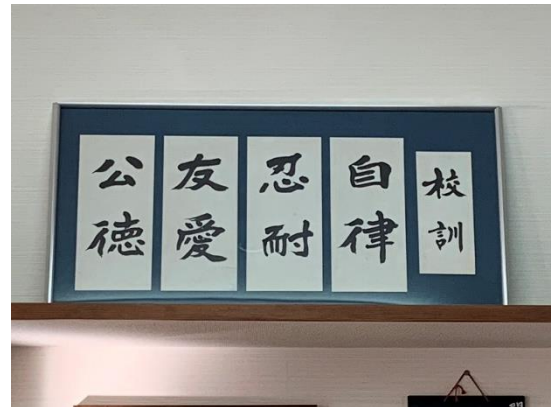 校訓
自律
忍耐
友愛
公徳